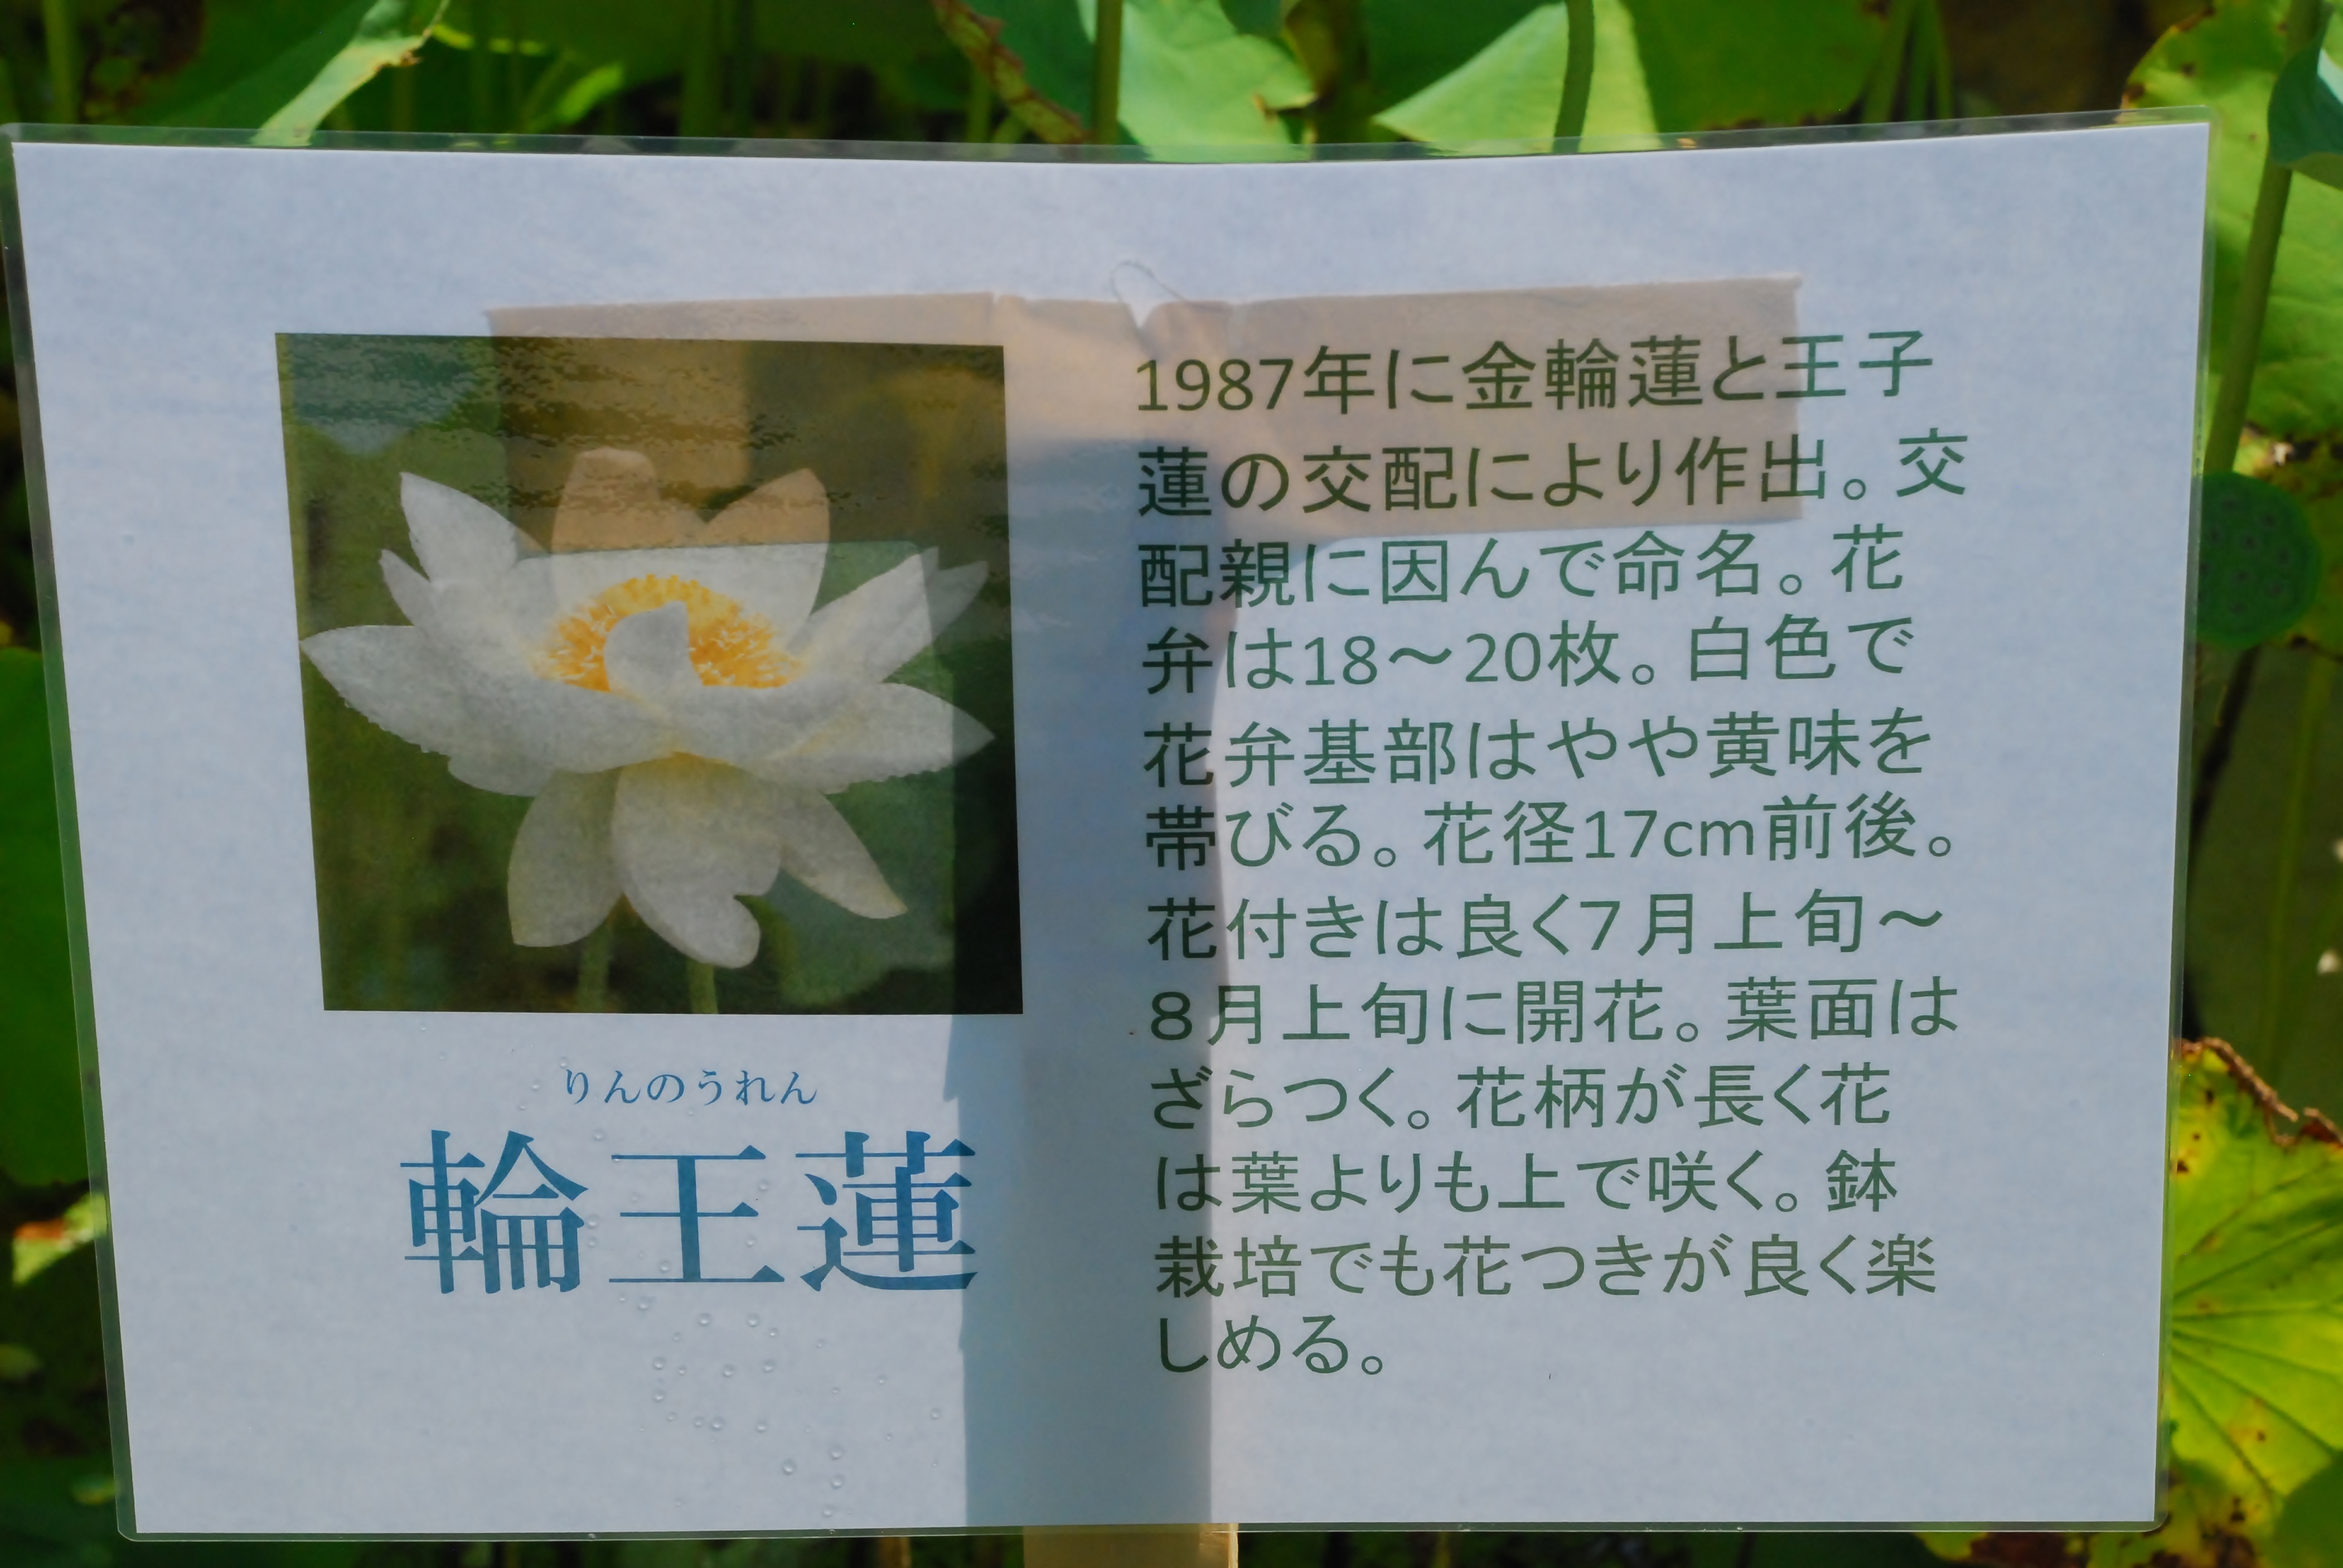 りんのうれん
輪王蓮
1987年に金輪蓮と王子
蓮の交配により作出。交
配親に因んで命名。花
弁は18～20枚。白色で
花弁基部はやや黄味を
帯びる。花径17cm前後。
花付きは良く7月上旬～
8月上旬に開花。葉面は
ざらつく。花柄が長く花
は葉よりも上で咲く。鉢
栽培でも花つきが良く楽
しめる。